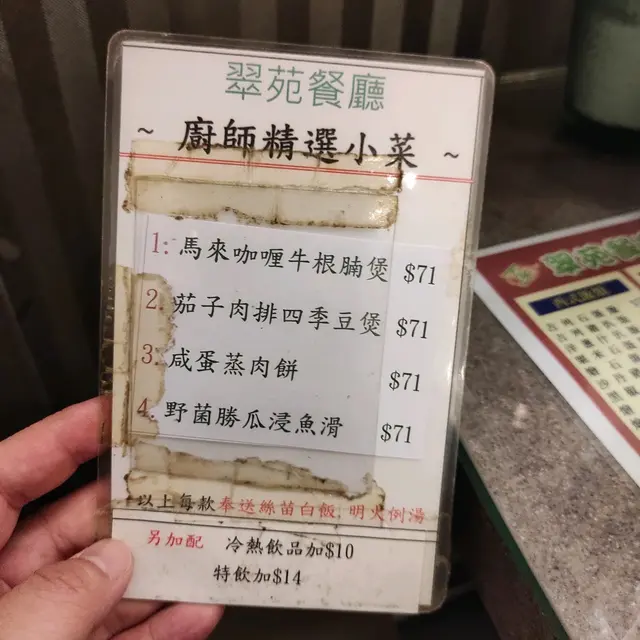 翠苑餐廳
~ 廚師精選小菜 ~
1: 馬來咖喱牛根腩煲 $71
2. 茄子肉排四季豆煲 $71
3. 咸蛋蒸肉餅 $71
4. 野菌勝瓜浸魚滑 $71
以上每款奉送絲苗白飯 明火例湯
另加配 冷熱飲品加$10
特飲加$14
翠苑